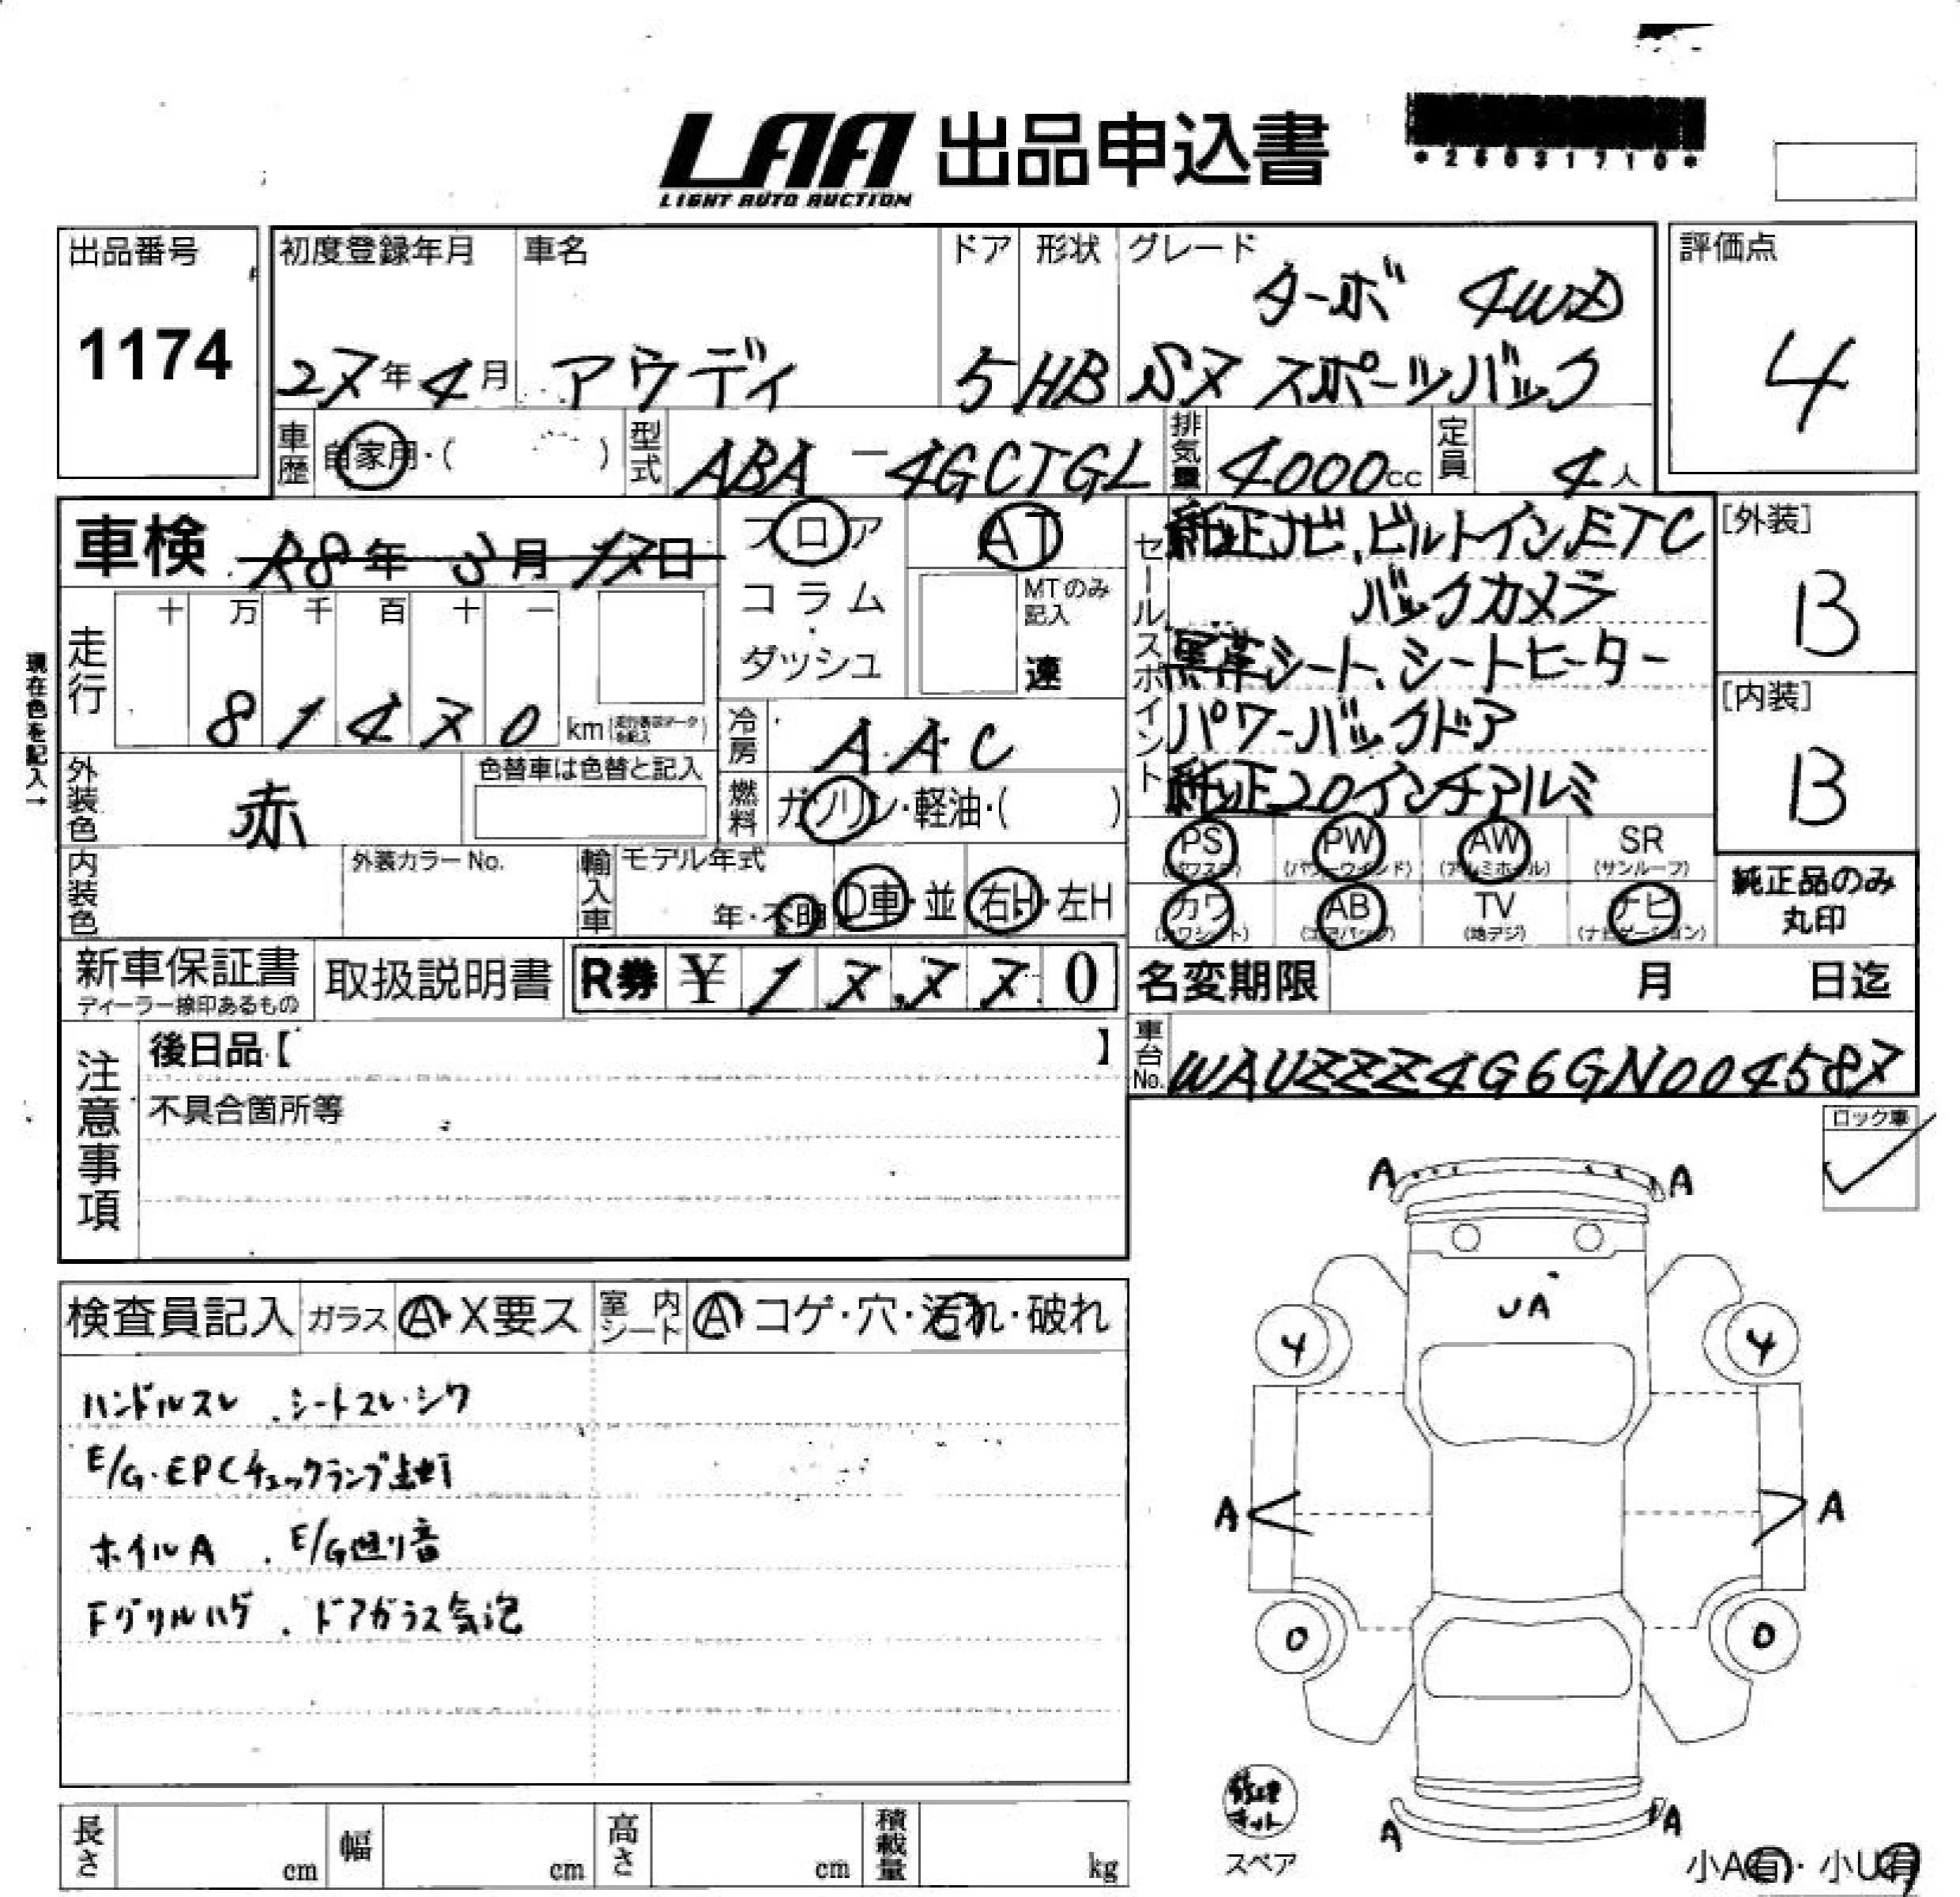 LAA 出品申込書
LIGHT AUTO AUCTION
出品番号
1174
初度登録年月 車名 ドア 形状 グレード
ターボ 4WD
27年4月 アウディ 5 HB S7 スポーツバック
評価点
4
車歴 自家用・( ) 型式 ABA-4GCTGL 排気量 4000cc 定員 4人
車検 R8年3月17日
フロア
コラム
・
ダッシュ
AT
MTのみ
記入
速
セールスポイント
純正ナビ、ビルトインETC
バックカメラ
黒革シート、シートヒーター
パワーバックドア
純正20インチアルミ
[外装]
B
[内装]
B
現在色を記入→
走行 十 万 千 百 十 一
81470 km
冷房 AAC
外装色 赤 色替車は色替と記入
燃料 ガソリン・軽油・( )
内装色 外装カラーNo. 輸入車 モデル年式
年・不明 D車・並 右H・左H
PS PW AW SR
(パワステ) (パワーウインド) (アルミホイール) (サンルーフ)
カワ AB TV ナビ
(カワシート) (エアバッグ) (地デジ) (ナビゲーション)
純正品のみ
丸印
新車保証書
ディーラー捺印あるもの
取扱説明書
R券 ¥17,770
名変期限 月 日迄
車台No. WAUZZZ4G6GN004587
注意事項
後日品【 】
不具合箇所等
ロック車
検査員記入 ガラス A・X要ス 室内シート A コゲ・穴・汚れ・破れ
ハンドルスレ . シートスレ・シワ
E/G・EPCチェックランプ点灯
ホイルA . E/G廻り音
Fグリルハゲ . ドアガラス気泡
A A
UA
4 4
A A
0 0
A A
修理キット
スペア
小A有・小U有
長さ cm 幅 cm 高さ cm 積載量 kg